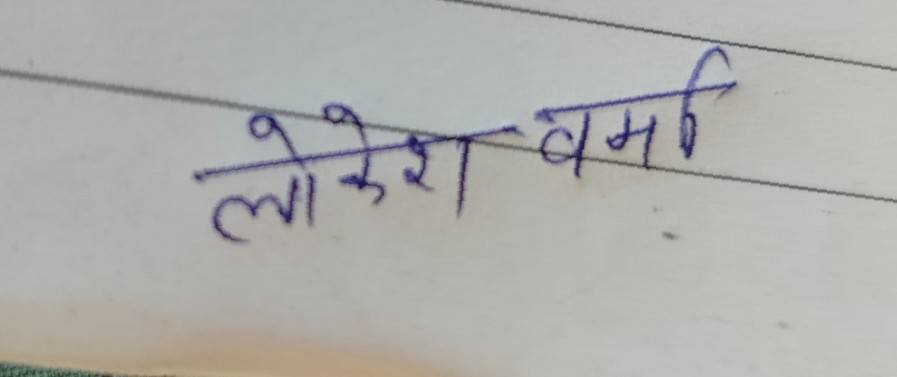 लोकेश वर्मा